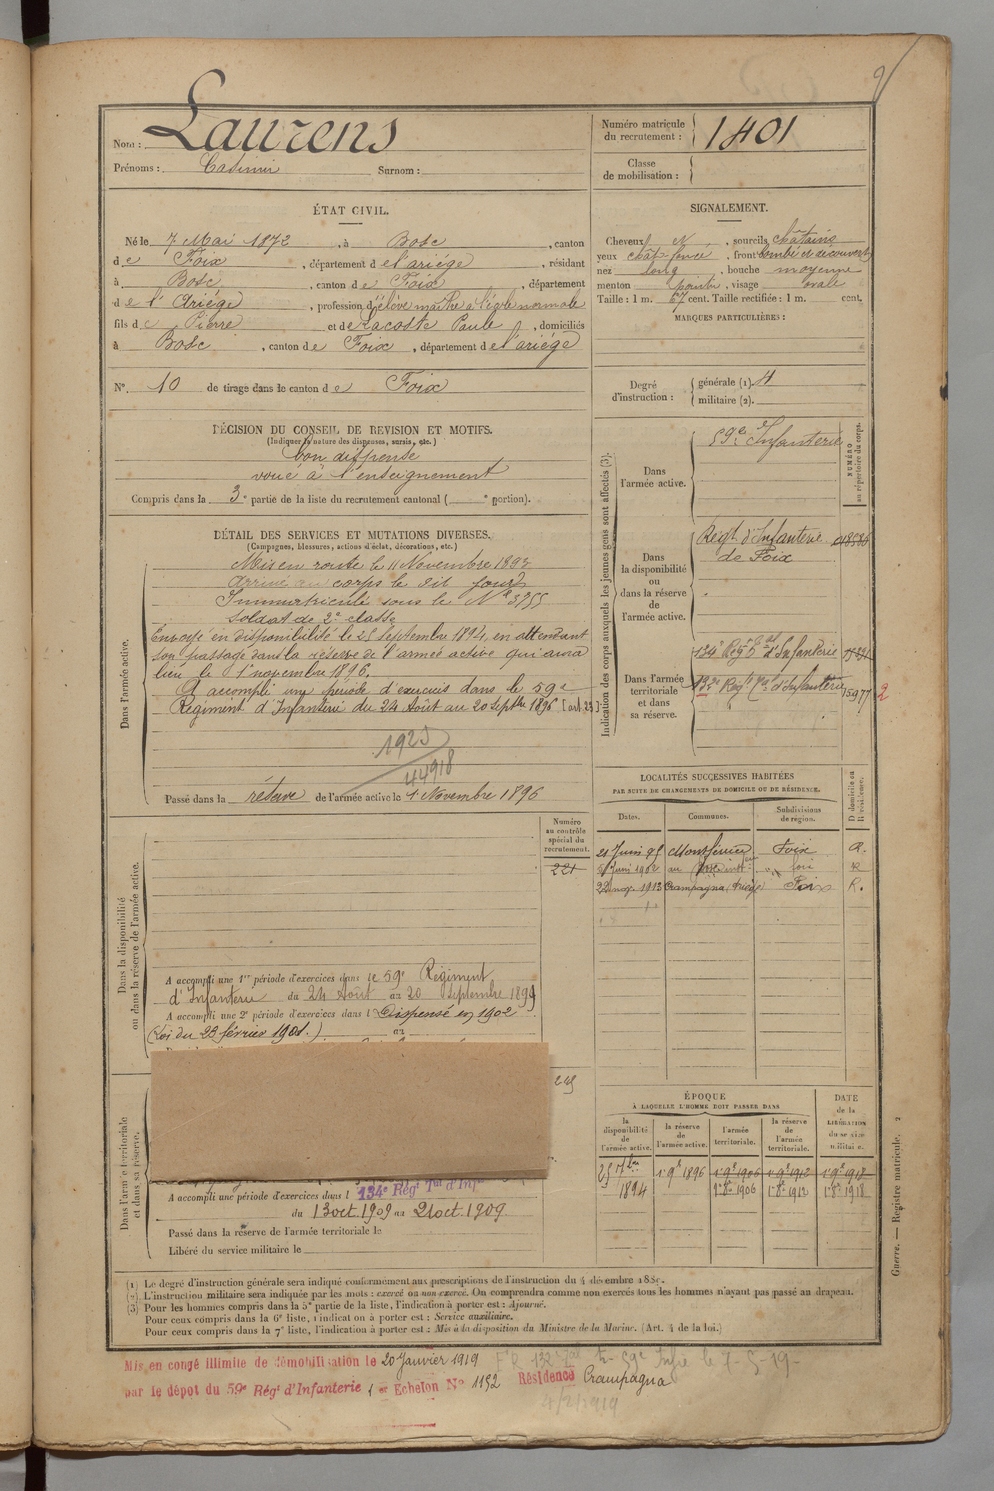 Nom : Laurens
Prénoms : Casimir Surnom :
Numéro matricule du recrutement : 1401
Classe de mobilisation :
ÉTAT CIVIL.
Né le 7 Mai 1872, à Bosc, canton
de Foix, département de l'ariége, résidant
à Bosc, canton de Foix, département
de l'Ariége, profession d'élève maître à l'école normale
fils de Pierre et de Lacoste Paule, domiciliés
à Bosc, canton de Foix, département de l'ariége
N° 10 de tirage dans le canton de Foix
SIGNALEMENT.
Cheveux N, sourcils châtains
yeux chât foncé, front bombé et découvert
nez long, bouche moyenne
menton pointu, visage ovale
Taille : 1 m. 67 cent. Taille rectifiée : 1 m. cent.
MARQUES PARTICULIÈRES :
Degré d'instruction : générale (1). 4
militaire (2).
DÉCISION DU CONSEIL DE REVISION ET MOTIFS.
(Indiquer la nature des dispenses, sursis, etc.)
bon dispensé
voué à l'enseignement
Compris dans la 3e partie de la liste du recrutement cantonal ( e portion).
DÉTAIL DES SERVICES ET MUTATIONS DIVERSES.
(Campagnes, blessures, actions d'éclat, décorations, etc.)
Dans l'armée active.
Mis en route le 11 Novembre 1893
arrivé au corps le dit jour
Immatriculé sous le N° 3755
soldat de 2e classe
Envoyé en disponibilité le 25 septembre 1894, en attendant
son passage dans la réserve de l'armée active qui aura
lieu le 1er novembre 1896.
A accompli une période d'exercices dans le 59e
Régiment d'Infanterie du 24 Août au 20 septbre 1896 [art. 23]
1925
44918
Passé dans la réserve de l'armée active le 1er Novembre 1896
Indication des corps auxquels les jeunes gens sont affectés (3).
NUMÉRO au répertoire du corps.
Dans l'armée active.
59e Infanterie
Dans la disponibilité ou dans la réserve de l'armée active.
Regt d'Infanterie 018586
de Foix
Dans l'armée territoriale et dans sa réserve.
134e Regt Tal d'Infanterie
132e Regt Tal d'Infanterie 5977 2
LOCALITÉS SUCCESSIVES HABITÉES
PAR SUITE DE CHANGEMENTS DE DOMICILE OU DE RÉSIDENCE.
Dates. Communes. Subdivisions de région. D domicile ou R résidence.
21 Juin 95 Montferrier Foix R.
8 Juin 1902 au foix R
22 nov. 1913 Crampagna, Ariège Foix R.
Numéro au contrôle spécial du recrutement.
221
Dans la disponibilité ou dans la réserve de l'armée active.
A accompli une 1re période d'exercices dans le 59e Régiment
d'Infanterie du 24 Août au 20 septembre 1899
A accompli une 2e période d'exercices dans l Dispensé en 1902
(Loi du 23 février 1901.) au
245
Dans l'armée territoriale et dans sa réserve.
A accompli une période d'exercices dans l 134e Régt Tal d'Infie
du 13 oct. 1909 au 21 oct. 1909
Passé dans la réserve de l'armée territoriale le
Libéré du service militaire le
ÉPOQUE
À LAQUELLE L'HOMME DOIT PASSER DANS
DATE de la LIBÉRATION du service militaire.
la disponibilité de l'armée active. la réserve de l'armée active. l'armée territoriale. la réserve de l'armée territoriale.
25 7bre 1er 9e 1896 1er 9e 1906 1er 9e 1912 1er 9e 1918
1894 1er 8e 1906 1er 8e 1912 1er 8e 1918
(1) Le degré d'instruction générale sera indiqué conformément aux prescriptions de l'instruction du 4 décembre 1889.
(2) L'instruction militaire sera indiquée par les mots : exercé ou non exercé. On comprendra comme non exercés tous les hommes n'ayant pas passé au drapeau.
(3) Pour les hommes compris dans la 5e partie de la liste, l'indication à porter est : Ajourné.
Pour ceux compris dans la 6e liste, l'indication à porter est : Service auxiliaire.
Pour ceux compris dans la 7e liste, l'indication à porter est : Mis à la disposition du Ministre de la Marine. (Art. 4 de la loi.)
Guerre. — Registre matricule. 2
Mis en congé illimité de démobilisation le 20 Janvier 1919
par le dépôt du 59e Régt d'Infanterie 1er Echelon N° 1152 Résidence Crampagna